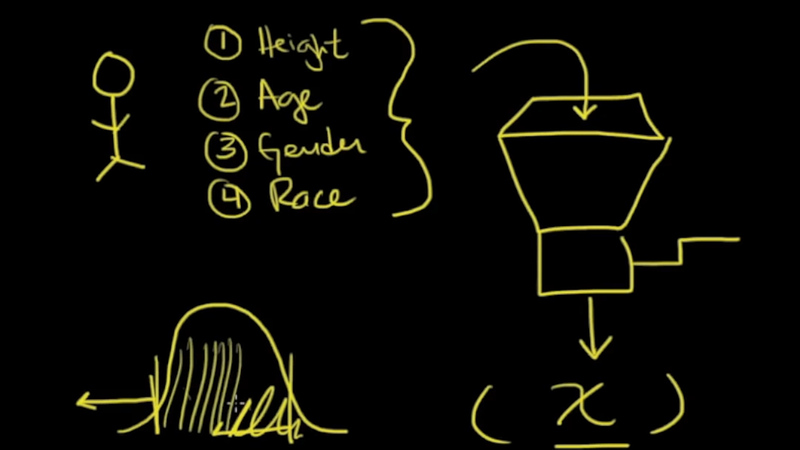 ① Height
② Age
③ Gender
④ Race
( x )